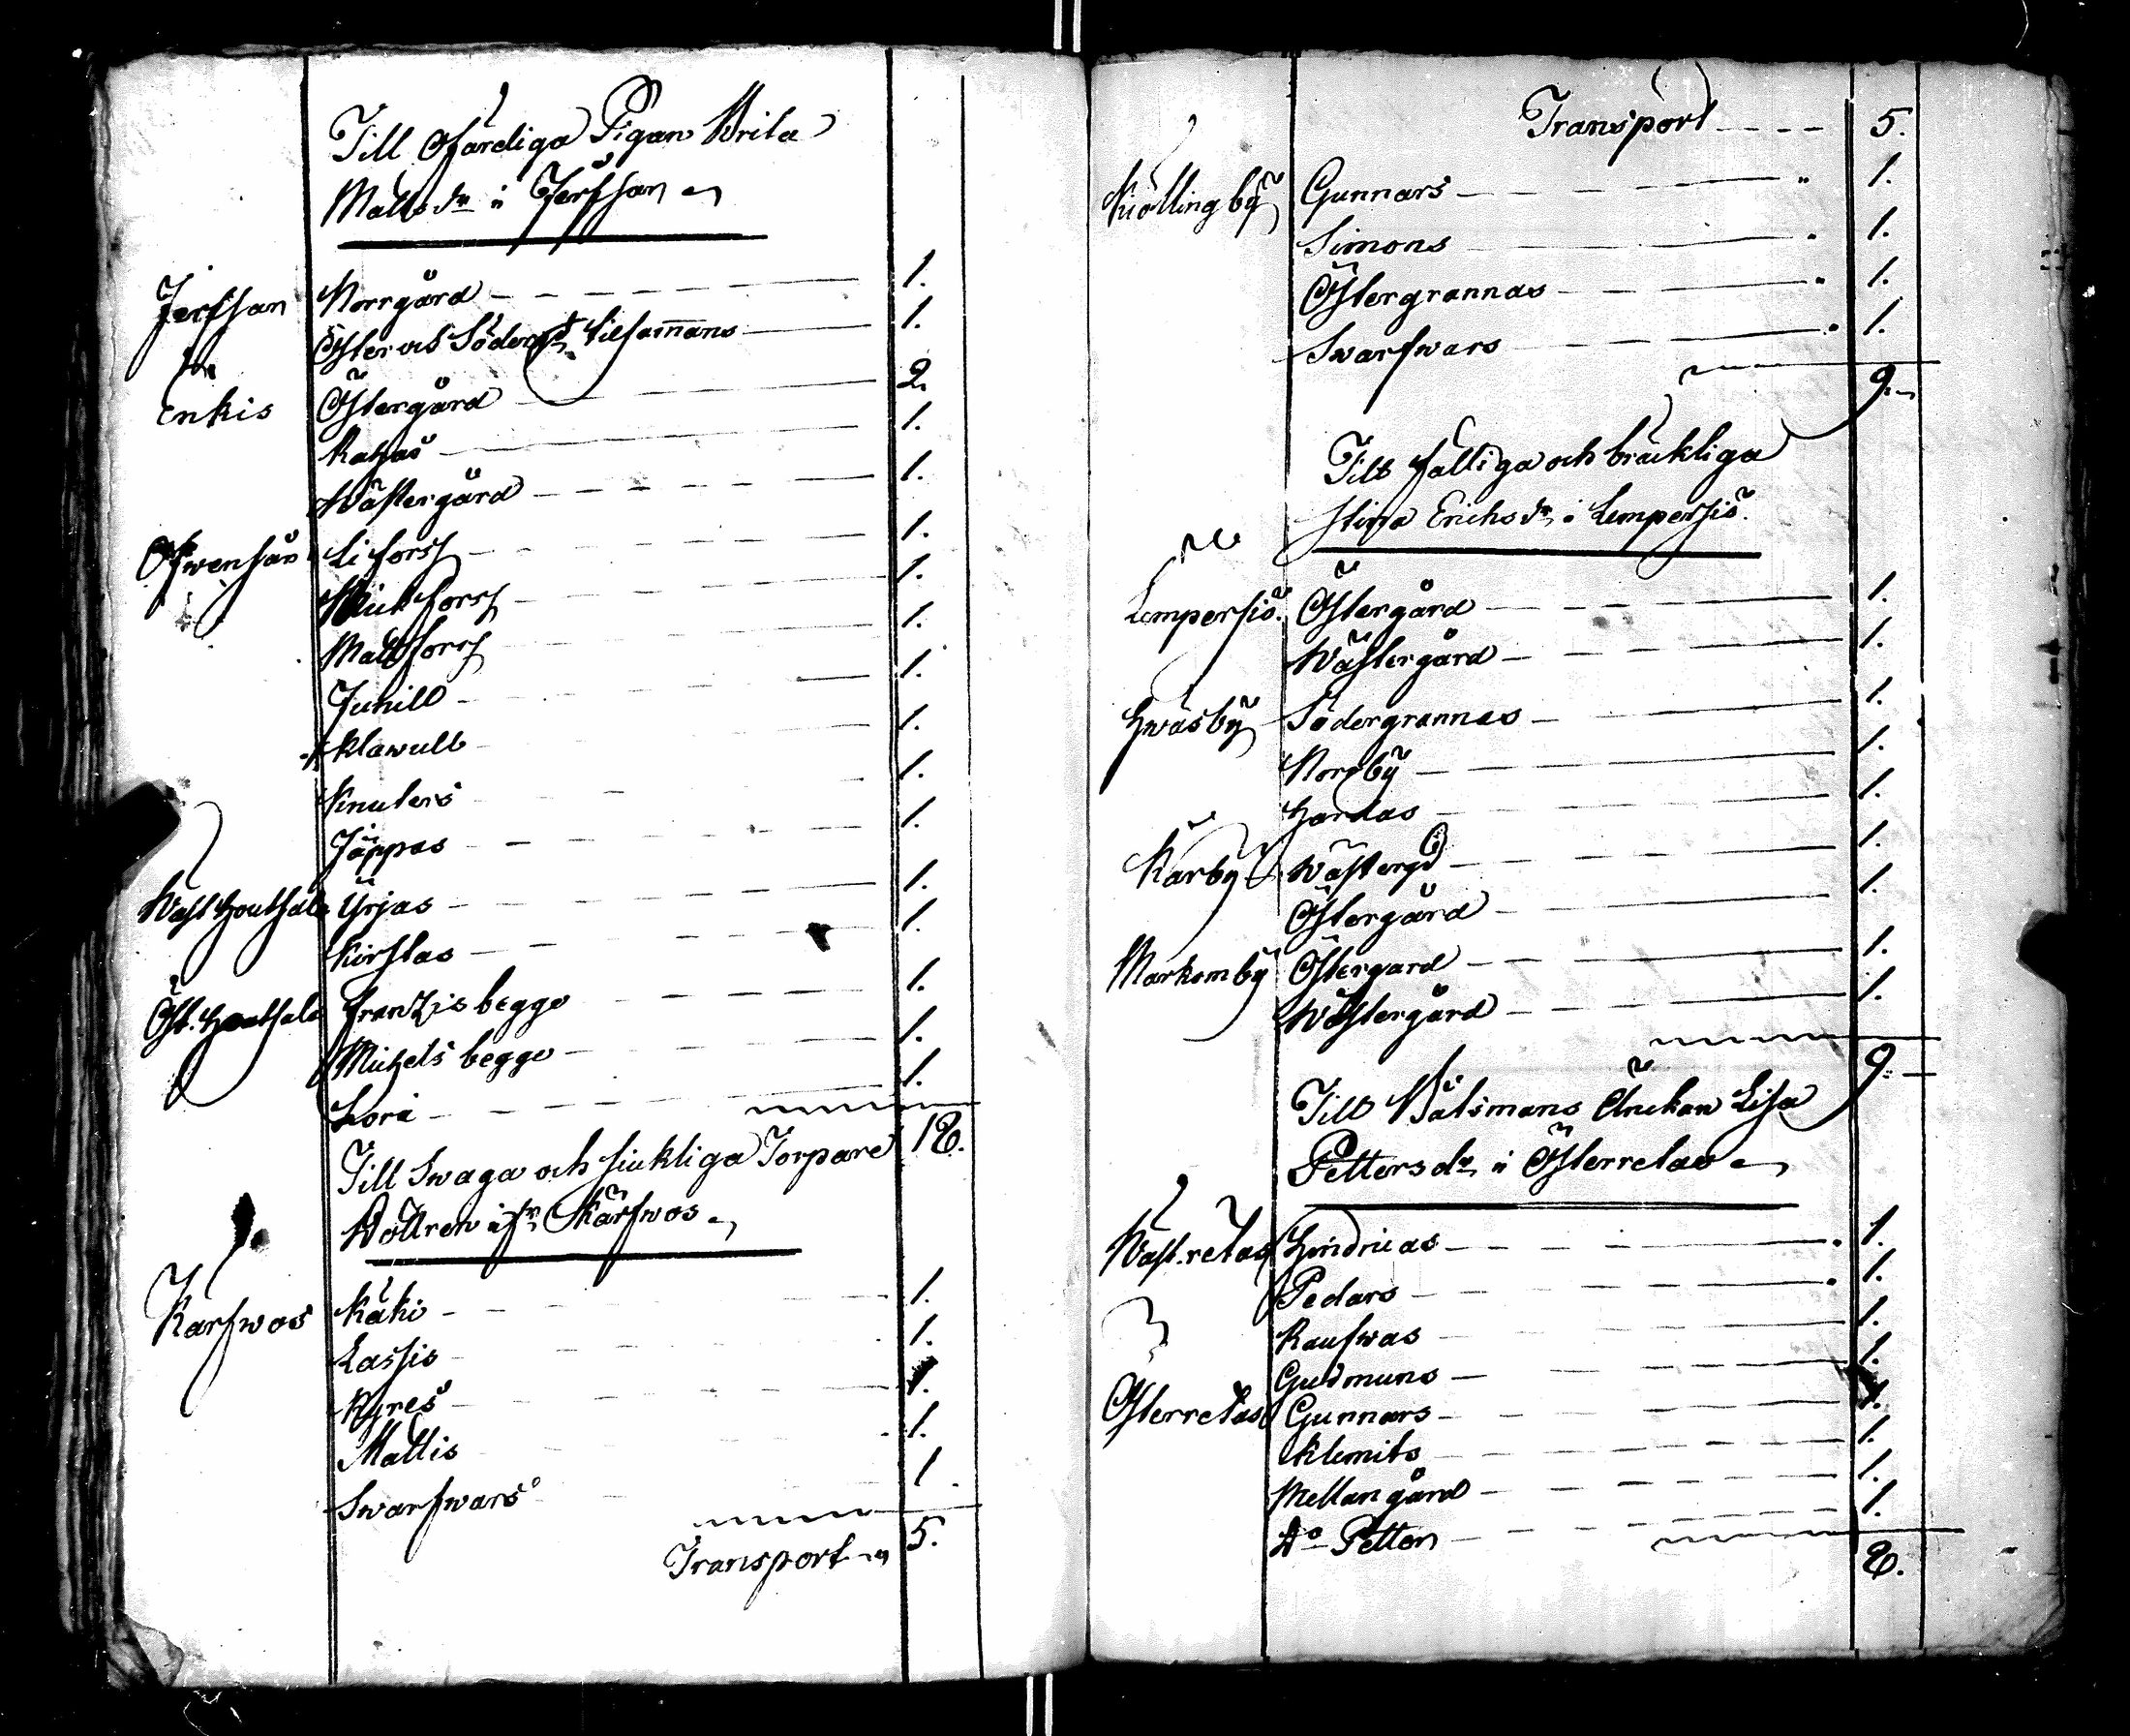 Till Ofärdiga Pigan Brita
Matts dr i Jerfsan
Jerfsan Norrgård 1.
Öster och Södergd tilsam̄ans 1.
Enkis Östergård 2.
Kahas 1.
Wästergård 1.
Ofwensån Liforss 1.
Forss 1.
Mattsforss 1.
Junill 1.
Klawull 1.
Knuters 1.
Jäppas 1.
Wäst Houtsala Yrjas 1.
Kirstas 1.
Öst. Houtsala Frantzis begge 1.
Michels begge 1.
Lori 1.
18.
Till Swaga och siukliga Torpare
Dottren ifr Kärfwos
Karfwos Käki 1.
Lassis 1.
Kyres 1.
Mattis 1.
Swarfwars 1
Transport 5.
Transport 5.
Kiöttingby Gunnars 1.
Simons 1.
Östergrannas 1.
Swarfwars 1.
9.
Till fattiga och bräckliga
Stina Erichs dr i Lempersiö
Lempersiö Östergård 1.
Wästergård 1.
Hwäsby Södergrannas 1.
Norrby 1.
Hardas 1.
Kärby Wästergd 1.
Östergård 1.
Markomby Östergard 1.
Wästergård 1.
9.
Till Båtsmans Änckan Lisa
Petters dr i Österretas
Wäst.retas Hindricas 1.
Pedars 1.
Raufwas 1.
Gudmuns 1.
Österretas Gunnars 1.
Klemits 1.
Mellangård 1.
Do Petter 1.
8.